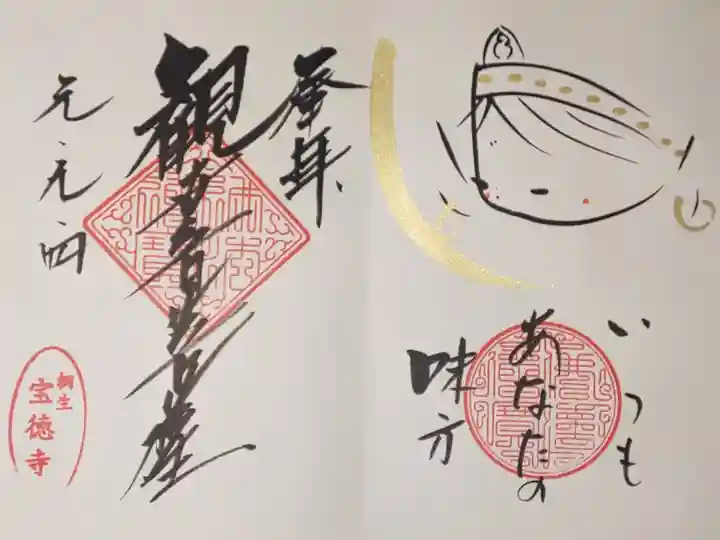 いつも
あなたの
味方
奉拝
観世音菩薩
桐生
宝徳寺